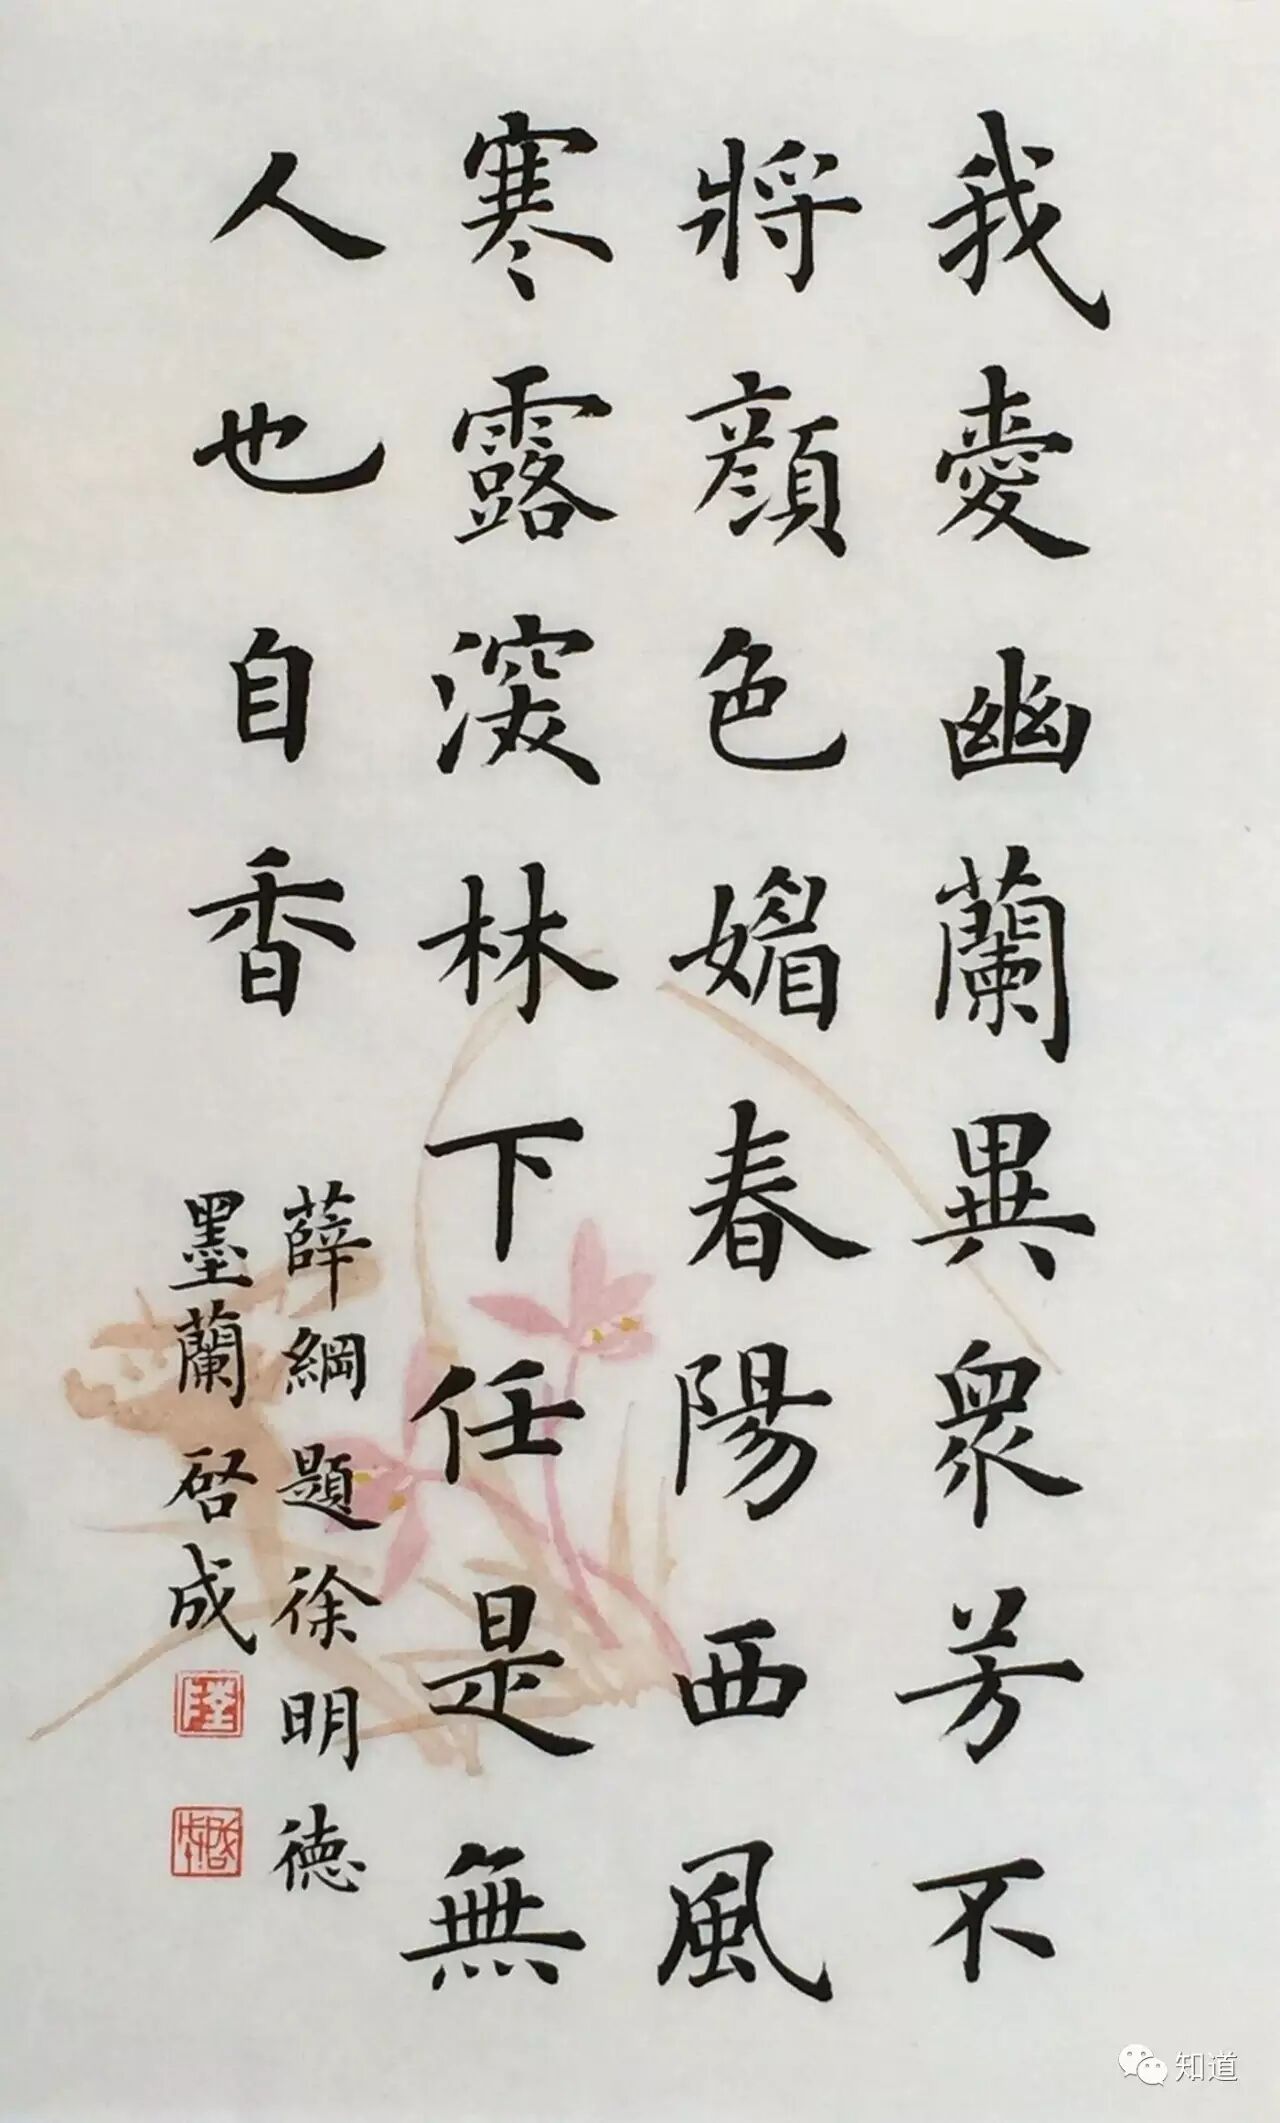 我愛幽蘭異衆芳不
將顔色媚春陽西風
寒露深林下任是無
人也自香
薛綱題徐明德
墨蘭 啓成
知道